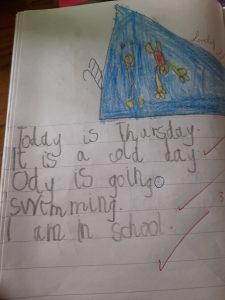 Lovely
Today is Thursday.
It is a old day
Ody is going
swimming.
I am in school.